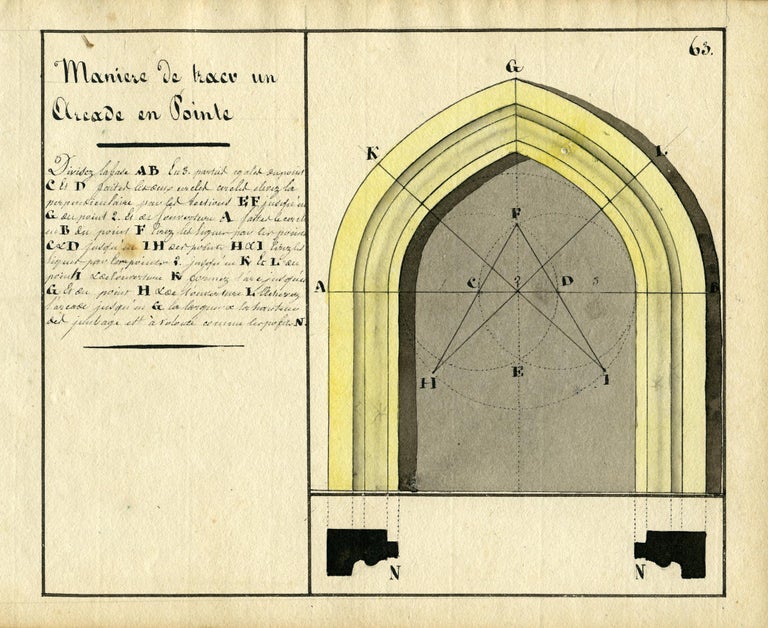 63.
Maniere de tracer un
Arcade en Pointe
Divisez la base AB En 3. partiet egalet du point
C Et D faitet les deux cerclet elevez la
perpendiculaire par les sections EF jusqu'en
G du point 2. Et de l'ouverture A faitet le cercle
en B du point F tirez les lignet par les points
C & D jusqu'en I H des points H & I tirez les
lignet par les points 2. jusqu'en K Et L du
point I & de l'ouverture K formez l'arc jusqu'en
G Et du point H & de l'ouverture L
l'arcade jusqu'en G la largeur & la hauteur
det jambage est à volonté comme les profils N.
G
K
L
F
A
C
2
D
3
B
H
E
I
N
N